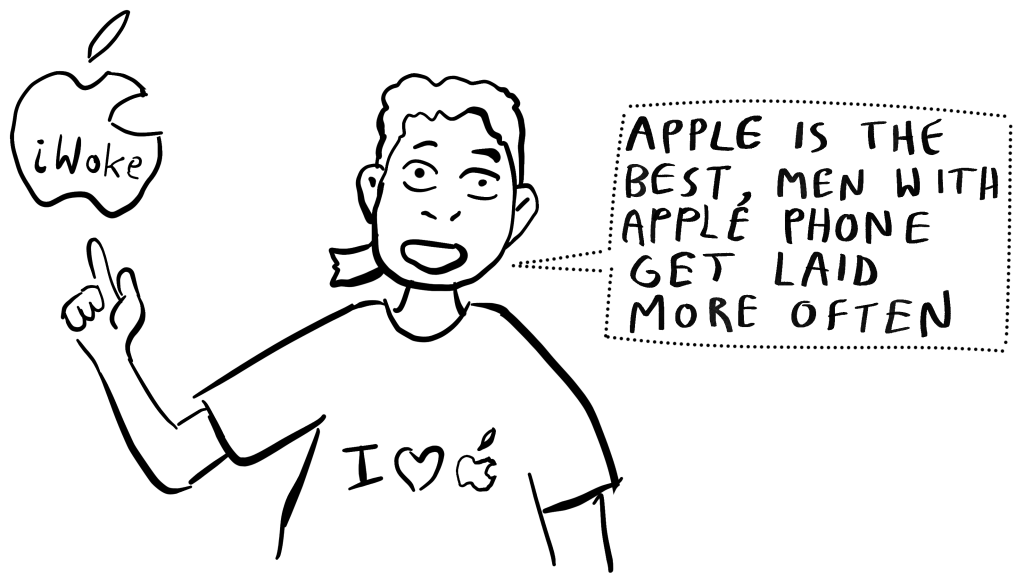 iWoke
APPLE IS THE
BEST, MEN WITH
APPLE PHONE
GET LAID
MORE OFTEN
I